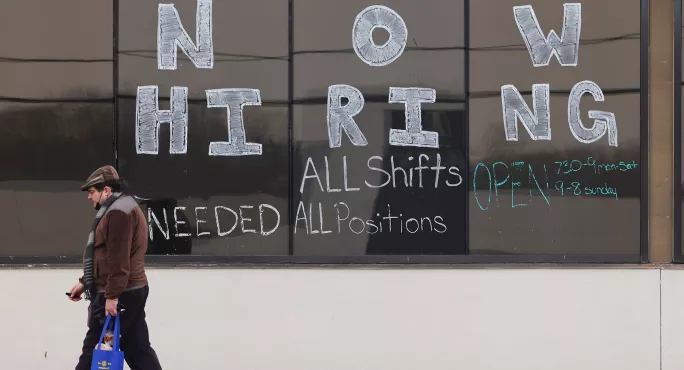 NOW
HIRING
ALL Shifts
NEEDED ALL Positions
OPEN 730-9 mon-Sat
9-8 sunday